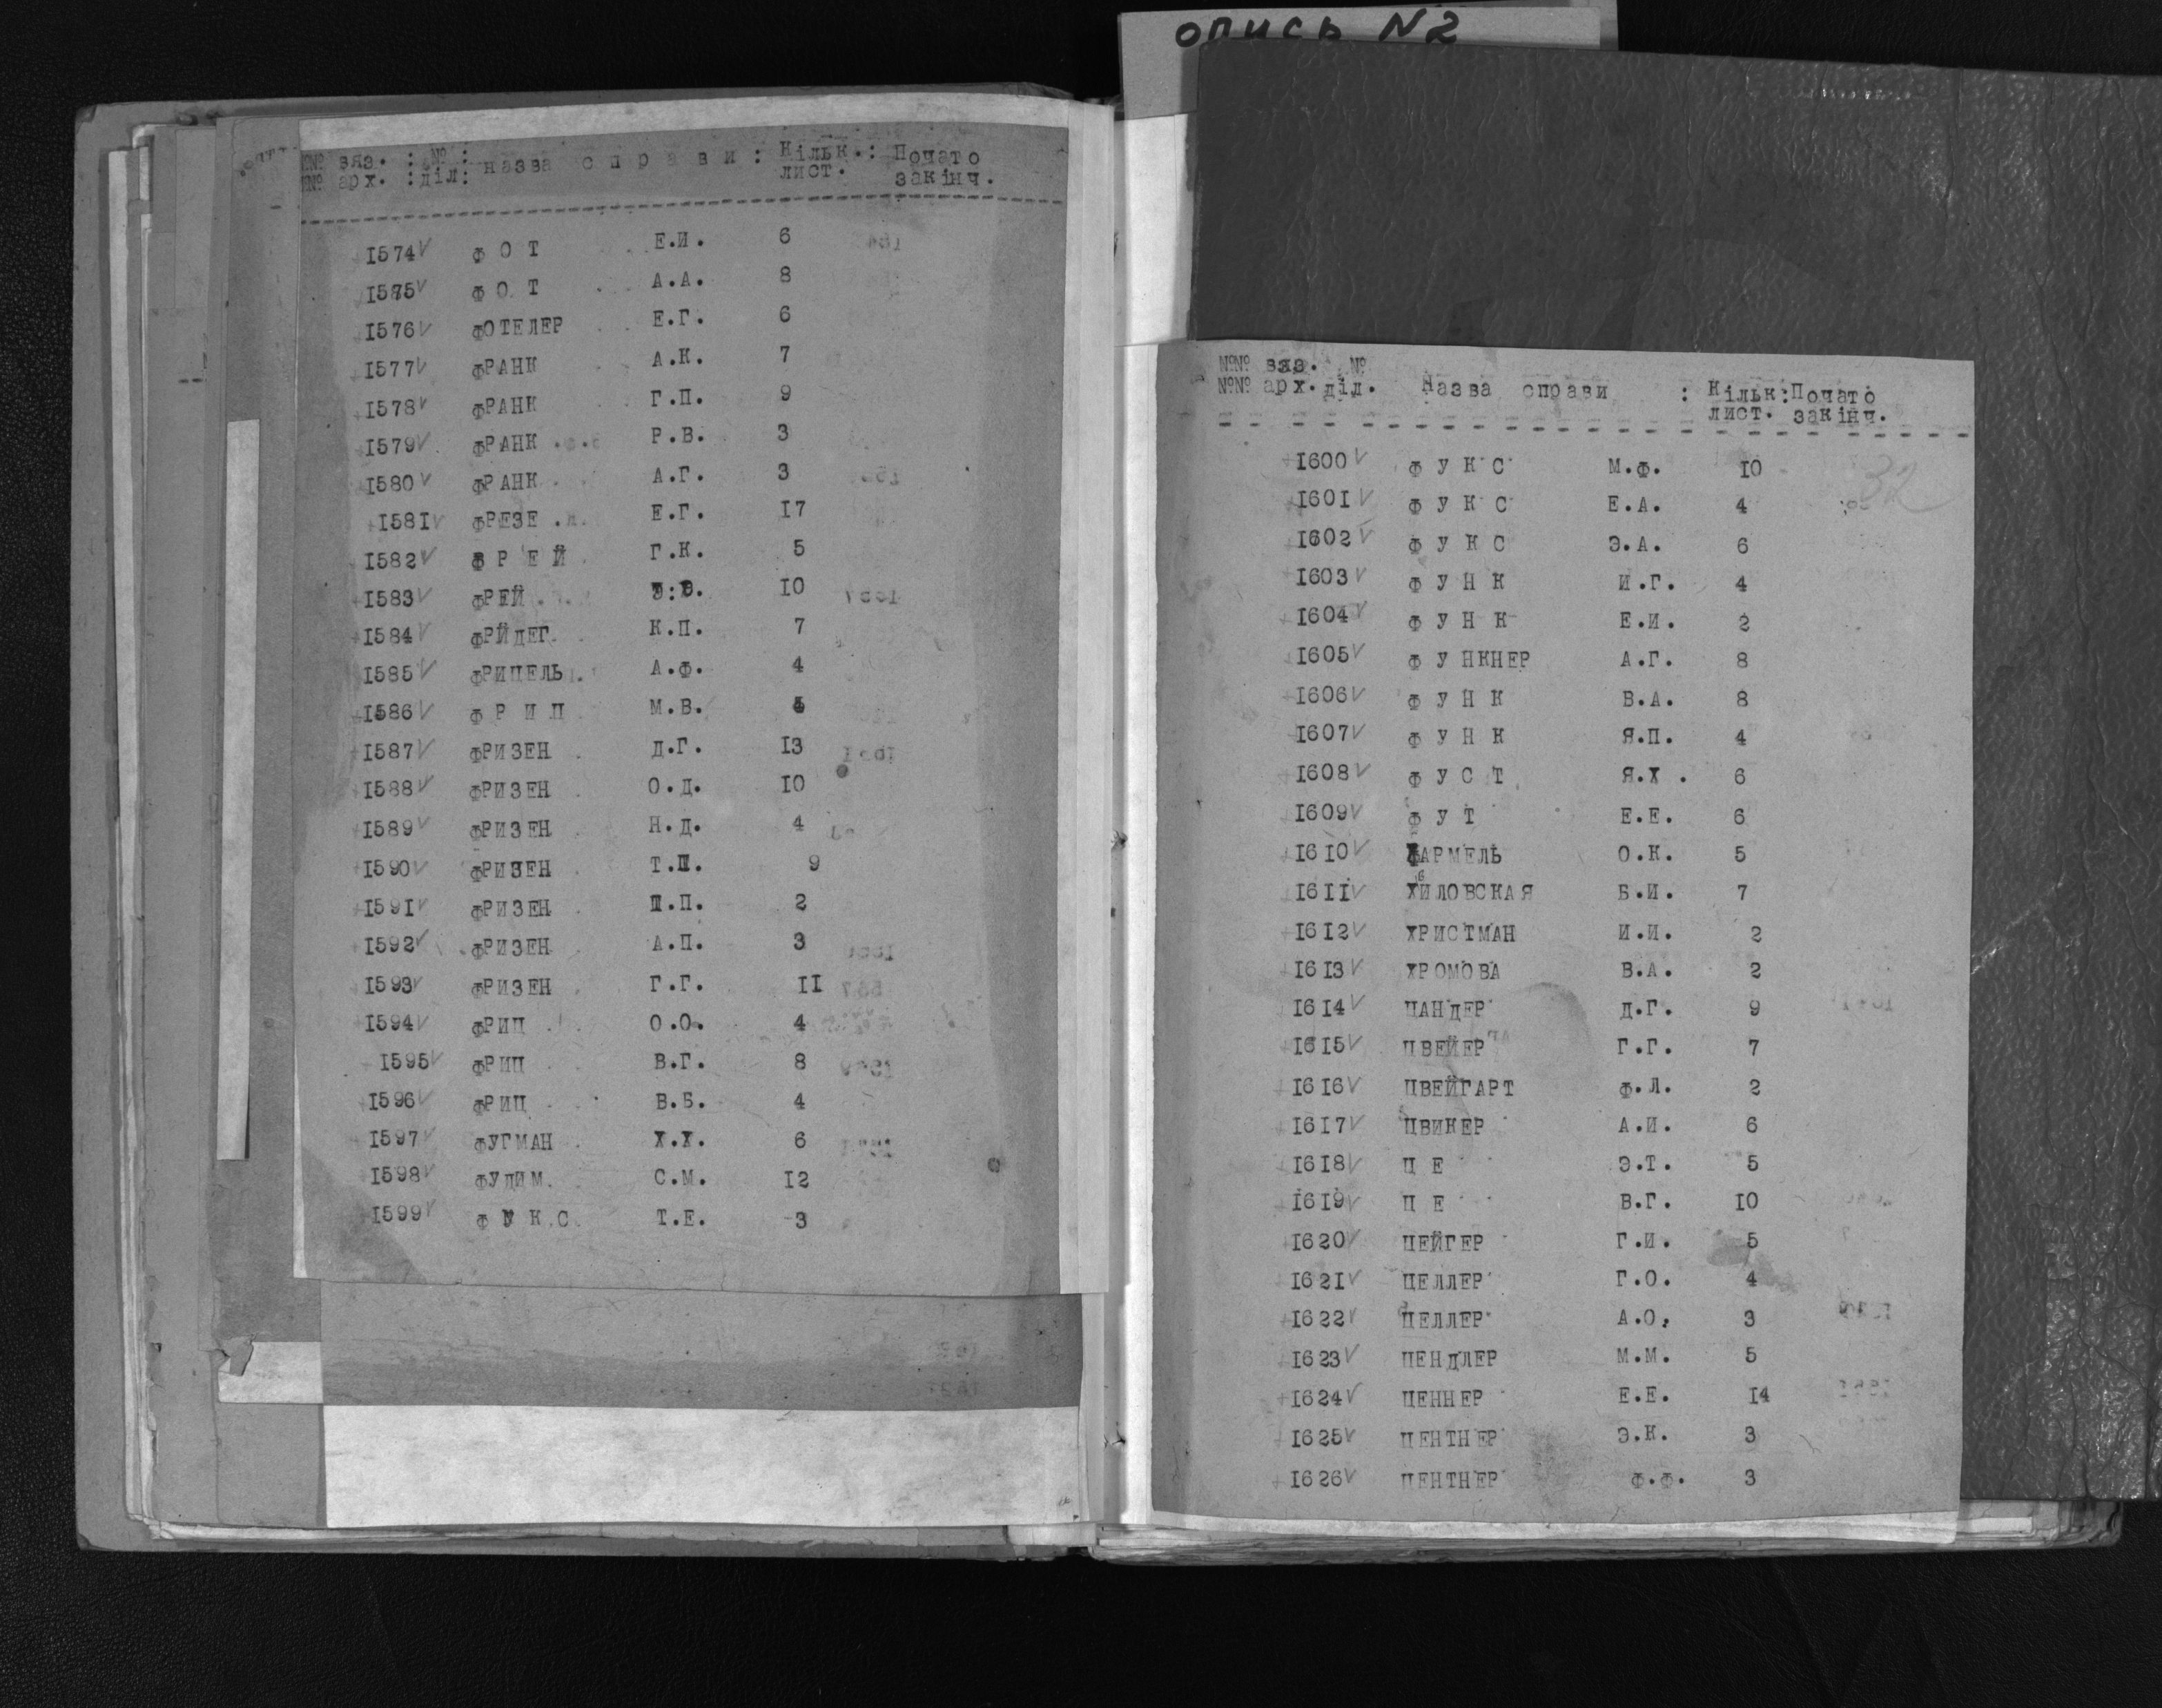 опись N2
№№ вяз. : № : назва справи : Кільк. : Почато
№№ арх. : діл: лист. закінч.
1574 ФОТ Е.И. 6
1575 ФОТ А.А. 8
1576 ФОТЕЛЕР Е.Г. 6
1577 ФРАНК А.К. 7
1578 ФРАНК Г.П. 9
1579 ФРАНК Р.В. 3
1580 ФРАНК А.Г. 3
1581 ФРЕЗЕ Е.Г. 17
1582 ФРЕЙ Г.К. 5
1583 ФРЕЙ 10
1584 ФРЙДЕГ К.П. 7
1585 ФРИЦЕЛЬ А.Ф. 4
1586 М.В.
1587 ФРИЗЕН Д.Г. 13
1588 ФРИЗЕН О.Д. 10
1589 ФРИЗЕН Н.Д. 4
1590 ФРИЗЕН 9
1591 ФРИЗЕН 2
1592 ФРИЗЕН А.П. 3
1593 ФРИЗЕН Г.Г. 11
1594 ФРИЦ О.О. 4
1595 ФРИЦ В.Г. 8
1596 ФРИЦ В.Б. 4
1597 ФУГМАН Х.Х. 6
1598 ФУДИМ С.М. 12
1599 ФУКС Т.Е. 3
№№ вяз. №
№№ арх. діл. Назва справи : Кільк:Почато
лист. закінч.
32
1600 ФУКС М.Ф. 10
1601 ФУКС Е.А. 4
1602 ФУКС Э.А. 6
1603 ФУНК И.Г. 4
1604 ФУНК Е.И. 2
1605 ФУНКНЕР А.Г. 8
1606 ФУНК В.А. 8
1607 ФУНК Я.П. 4
1608 ФУСТ Я.Х. 6
1609 ФУТ Е.Е. 6
1610 ХАРМЕЛЬ О.К. 5
1611 ХИЛОВСКАЯ Б.И. 7
1612 ХРИСТМАН И.И. 2
1613 ХРОМОВА В.А. 2
1614 ЦАНДЕР Д.Г. 9
1615 ЦВЕЙЕР Г.Г. 7
1616 ЦВЕЙГАРТ Ф.Л. 2
1617 ЦВИКЕР А.И. 6
1618 ЦЕ Э.Т. 5
1619 ЦЕ В.Г. 10
1620 ЦЕЙГЕР Г.И. 5
1621 ЦЕЛЛЕР Г.О. 4
1622 ЦЕЛЛЕР А.О. 3
1623 ЦЕНДЛЕР М.М. 5
1624 ЦЕННЕР Е.Е. 14
1625 ЦЕНТНЕР Э.К. 3
1626 ЦЕНТНЕР Ф.Ф. 3